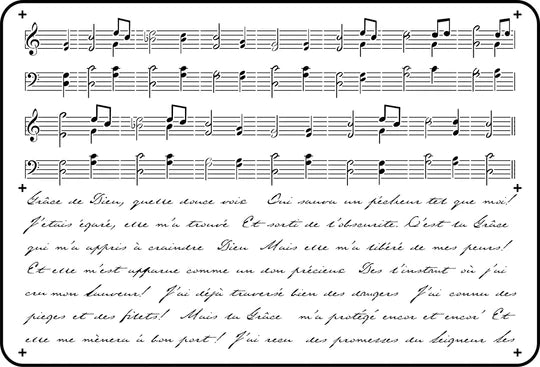 Grâce de Dieu, quelle douce voie Qui sauva un pécheur tel que moi!
J'étais égaré, elle m'a trouvé Et sorti de l'obscurité. C'est ta Grâce
qui m'a appris à craindre Dieu Mais elle m'a libéré de mes peurs!
Et elle m'est apparue comme un don précieux Des l'instant où j'ai
cru mon Sauveur! J'ai déjà traversé bien des dangers J'ai connu des
pieges et des filets! Mais ta Grâce m'a protégé encor et encor' Et
elle me mènera à bon port! J'ai recu des promesses du Seigneur Ses